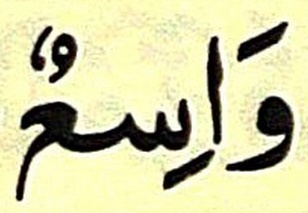 وَاسِعٌ